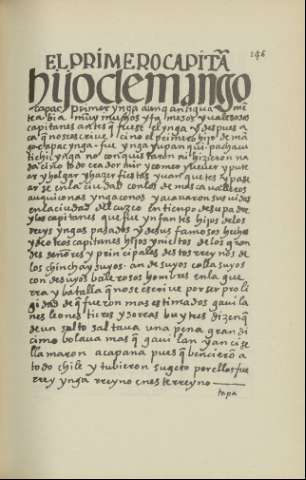 146
EL PRIMERO CAPITÃ
hijo de mango
capac primer ynga aunq̃ antigua mẽ
te abia muy muchos y famosos y balerosos
capitanes antes q̃ fuese el ynga y despues a
ca q̃ no se escriue cino el primer hijo de mã
go capac ynga fue ynga yupanqui pachacu
ti no conquistaron ni hizieron na
da cino borrachear y comer y luxuriar y pute
ar y holgar y hazer fiestas y uanquetes y pase
ar se en la ciudad con los demas caualleros
auquiconas yngaconas y acauaron sus uidas
en la ciudad del cuzco en tienpo de su padre
y los capitanes que fue ynfantes hijos de los
reys yngas pasados y de sus famosos hecho
y de otros capitanes hijos y nietos de los grã
des señores y prencipales destos reynos de
los chinchaysuyos andesuyos collasuyos
condesuyos balerosos hombres en la gue
rra y batalla q̃ no se escriue por ser proli
gidad de q̃ fueron mas estimados gauila
nes leones ticres y sorras buytres dizen q̃
de un salto saltaua una pena grandi
cimo bolaua mas q̃ gauilan y anci se
llamaron acapana pues q̃ bencieron a
todo chile y tubieron sugeto por ellos fue
rrey ynga rreyno en este rreyno
capa